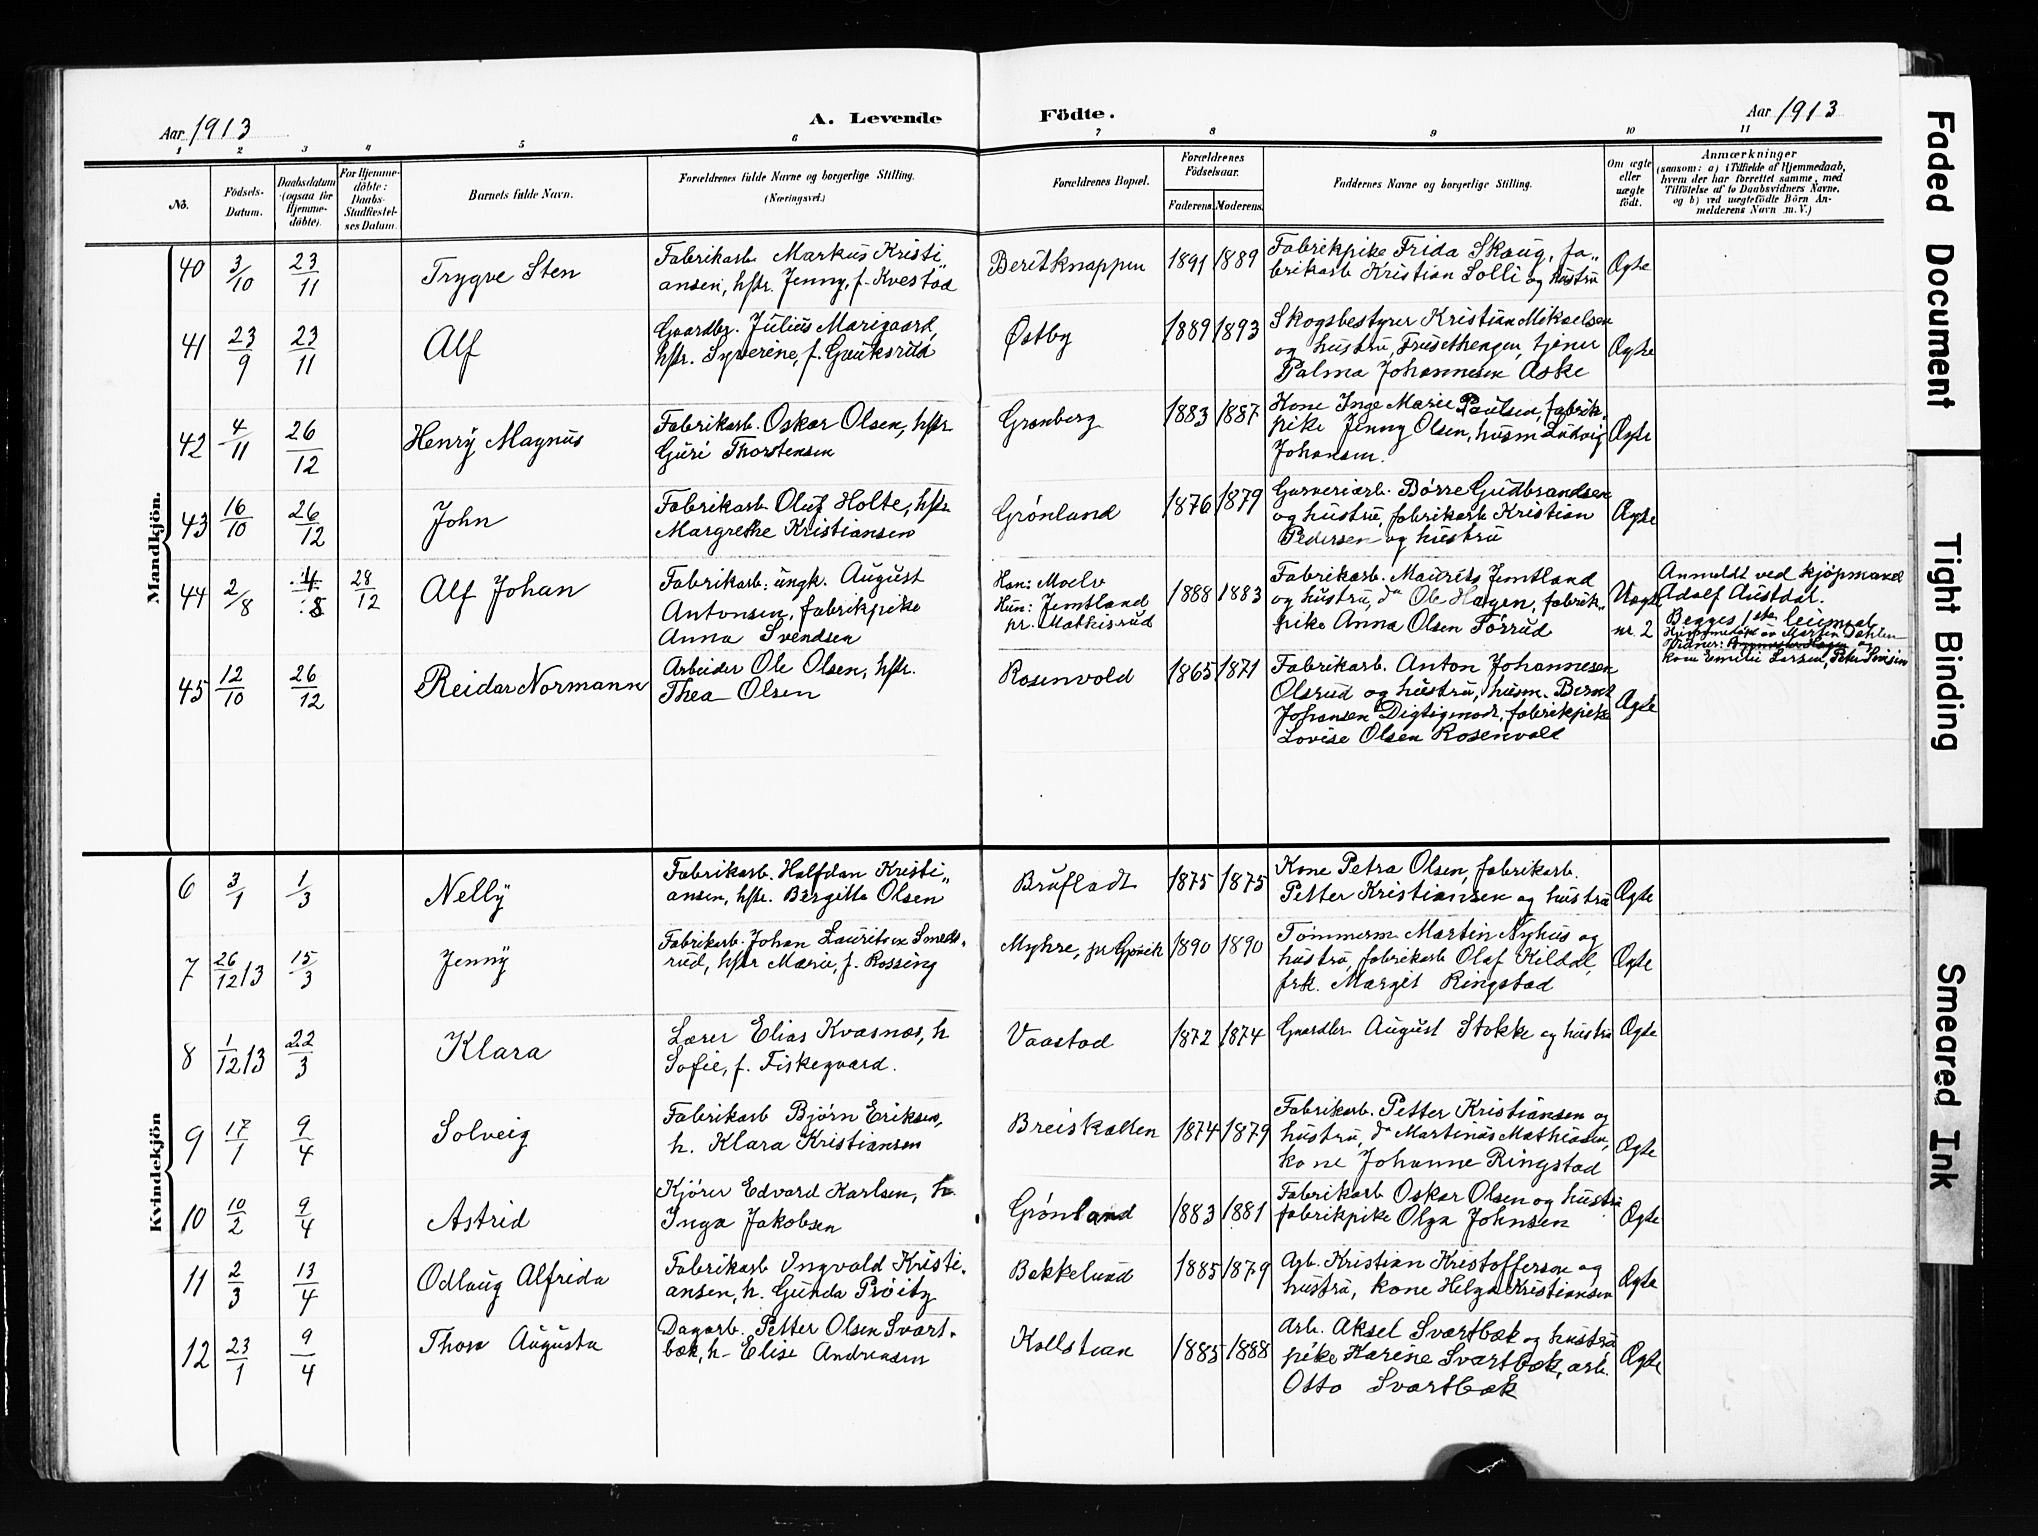 Aar 1913
A. Levende Födte.
Aar 1913
1 2 3 4 5 6 7 8 9 10 11
No.
Födsels-
Datum.
Daabsdatum
(ogsaa for
Hjemme-
döbte).
For Hjemme-
döbte:
Daabs-
Stadfæstel-
ses Datum.
Barnets fulde Navn.
Forældrenes fulde Navne og borgerlige Stilling.
(Næringsvei.)
Forældrenes Bopæl.
Forældrenes
Födselsaar.
Faderens. Moderens.
Faddernes Navne og borgerlige Stilling.
Om ægte
eller
uægte
födt.
Anmærkninger
(saasom: a) i Tilfælde af Hjemmedaab,
hvem der har forrettet samme, med
Tilföielse af to Daabsvidners Navne,
og b) ved uægtefödte Börn An-
melderens Navn m. V.)
Mandkjön.
40 3/10 23/11 Trygve Sten
Fabrikarb. Markus Kristi„
ansen, hstr. Jenny, f. Kvestad
Beritknappen 1891 1889
Fabrikpike Frida Skaug, fa„
brikarb Kristian Solli og hustru
Ægte
41 23/9 23/11 Alf
Gaardbr. Julius Marigaard,
hstr. Syverine, f. Gauksrud
Østby 1889 1893
Skogsbestyrer Kristian Mikaelsen
og hustru, Frusethengen, tjener
Palma Johannesen Aske
Ægte
42 4/11 26/12 Henry Magnus
Fabrikarb. Oskar Olsen, hstr
Guri Thorstensen
Grønberg 1883 1887
Kone Inge Marie Paulsen, fabrik„
pike Jenny Olsen, husm Ludvig
Johansen.
Ægte
43 16/10 26/12 John
Fabrikarb Oluf Holte, hstr.
Margrethe Kristiansen
Grønland 1876 1879
Garveriarb. Børre Gudbrandsen
og hustru, fabrikarb Kristian
Pedersen og hustru
Ægte
44 2/8 4/8 28/12 Alf Johan
Fabrikarb: ungk. August
Antonsen, fabrikpike
Anna Svendsen
Han: Moelv
Hun: Jemtland
pr. Mathisrud
1888 1883
Fabrikarb. Maurits Jemtland
og hustru, do Ole Hagen, fabrik„
pike Anna Olsen Sørrud
Uægte
nr. 2
Anmeldt ved kjøpmand
Adolf Austdal.
Begges 1ste leiermaal
Hjemmedøpt av Marten Dahlen
Vidner:
kone Emilie Larsen, Peter
45 12/10 26/12 Reidar Normann
Arbeider Ole Olsen, hstr.
Thea Olsen
Rosenvold 1865 1871
Fabrikarb. Anton Johannesen
Olsrud og hustru, husm. Bernt
Johansen Digtigmodt, fabrikpike
Lovise Olsen Rosenvold
Ægte
Kvindekjön
6 3/1 1/3 Nelly
Fabrikarb. Halfdan Kristi„
ansen, hstr. Bergitte Olsen
Brufladt 1875 1875
Kone Petra Olsen, fabrikarb.
Petter Kristiansen og hustru
Ægte
7 26/12 13 15/3 Jenny
Fabrikarb. Johan Lauritsen Smeds„
rud, hstr Marie, f. Rossing
Myhre, pr Gjøvik 1890 1890
Tømmerm Martin Nyhus og
hustru, fabrikarb Olaf Kildal,
frk. Margit Ringstad
Ægte
8 1/12 13 22/3 Klara
Lærer Elias Kvasnæs, h
Sofie, f. Fiskegaard.
Vaastad 1872 1874
Gaardbr August Stokke og hustru
Ægte
9 17/1 9/4 Solveig
Fabrikarb Bjørn Eriksen,
h. Klara Kristiansen
Breiskallen 1874 1879
Fabrikarb. Petter Kristiansen og
hustru, do Martinus Mathiasen,
kone Johanne Ringstad
Ægte
10 10/2 9/4 Astrid
Kjører Edvard Karlsen, h.
Inga Jakobsen
Grønland 1883 1881
Fabrikarb Oskar Olsen og hustru
fabrikpike Olga Johnsen
Ægte
11 2/3 13/4 Odlaug Alfrida
Fabrikarb Ingvald Kristi„
ansen, h. Gunda Prøitz
Bakkelund 1885 1879
Arb. Kristian Kristoffersen og
hustru, kone Helga Kristiansen
Ægte
12 23/1 9/4 Thora Augusta
Dagarb. Petter Olsen Svart„
bæk, h. Elise Andreasen
Kollstuen 1885 1888
Arb. Aksel Svartbæk og hustru
pike Karine Svartbæk, arb.
Otto Svartbæk
Ægte
Faded Document
Tight Binding
Smeared Ink